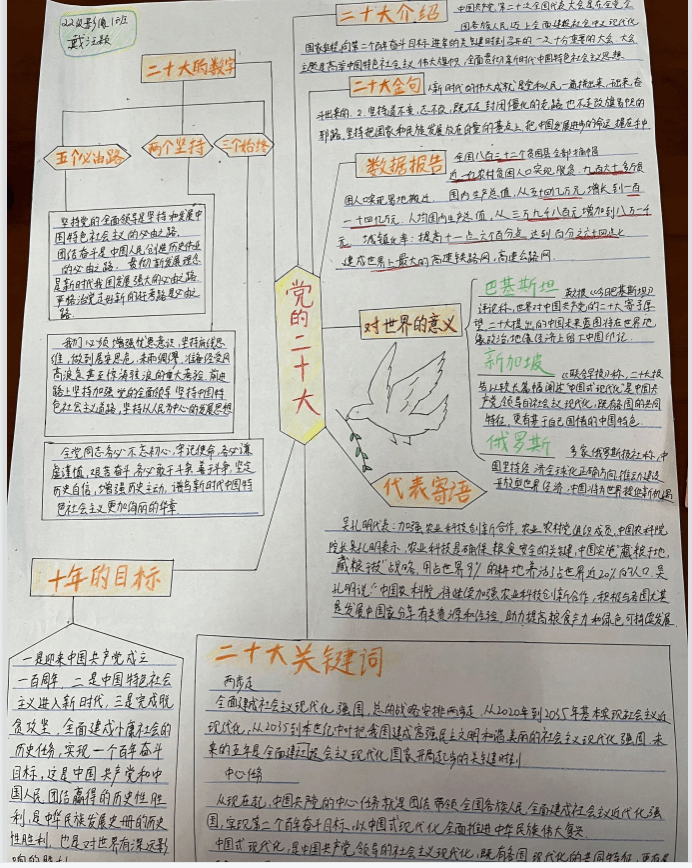 22级影像1班
戴注颖
二十大的数字
五个必由路
两个坚持
三个始终
坚持党的全面领导是坚持和发展中
国特色社会主义的必由之路.
团结奋斗是中国人民创造历史伟业
的必由之路. 贯彻新发展理念
是新时代我国发展强大的必由之路
严格治党走好新的赶考路是必由之
路.
我们必须增强忧患意识,坚持底线思
维,做到居安思危,未雨绸缪,准备经受风
高浪急甚至惊涛骇浪的重大考验.前进
路上坚持加强党的全面领导坚持中国特
色社会主义道路,坚持以人民为中心的发展思想
全党同志务必不忘初心,牢记使命,务必谦
虚谨慎,艰苦奋斗 务必敢于斗争,善于斗争,坚定
历史自信,增强历史主动,谱写新时代中国特
色社会主义更加绚丽的华章
十年的目标
一是迎来中国共产党成立
一百周年,二是中国特色社会
主义进入新时代,三是完成脱
贫攻坚,全面建成小康社会的
历史任务,实现一个百年奋斗
目标,这是中国共产党和中
国人民团结赢得的历史性胜
利,是中华民族发展史册的历史
性胜利,也是对世界有深远影
响的胜利
党的二十大
二十大介绍
中国共产党第二十次全国代表大会是在全党全
国各族人民迈上全面建设社会主义现代化
国家新征程,向第二个百年奋斗目标进军的关键时刻召开的一次十分重要的大会.大会
主题是高举中国特色社会主义伟大旗帜,全面贯彻新时代中国特色社会主义思想
二十大金句
1.新时代的伟大成就是党和人民一道拼出来,
斗出来的. 2.坚持道不变,志不改,既不走封闭僵化的老路,也不走改旗易帜的
邪路,坚持把国家和民族发展放在自己力量的基点上,把中国发展进步的命运
数据报告
全国八百三十二个贫困县全部摘帽
近一亿农村贫困人口实现脱贫,九百六十多万贫
困人口实现易地搬迁. 国内生产总值,从五十四亿万元,增长到一百
一十四亿万元. 人均国内生产总值,从三万九千八百元增加到八万一千
元. 城镇化率:提高十一点六个百分点,达到百分之六十四点七
建成世界上最大的高速铁路网,高速公路网.
对世界的意义
巴基斯坦
《今日巴基斯坦》
评论称,世界对中国共产党的二十大寄予厚
望,二十大提出的中国未来蓝图将在世界地
缘政治,地缘经济上留下中国印记.
新加坡
《联合早报》称,二十大报
告以较长篇幅阐述"中国式现代化"是中国共
产党领导的社会主义现代化,既有各国的共同
特征,更有基于自己国情的中国特色
俄罗斯
多家俄罗斯报社称,中
国坚持经济全球化正确方向,推动建设
开放型世界经济,中国将为世界提供新机遇
代表寄语
吴孔明代表:加强农业科技创新合作.农业农村党组成员,中国农科院
院长吴孔明表示,农业科技是确保粮食安全的关键,中国实施"藏粮于地,
藏粮于技"战略,用占世界9%的耕地养活了占世界近20%的人口.吴
孔明说:"中国农科院将继续加强农业科技创新合作,积极与各国尤其
是发展中国家分享有关资源和经验,助力提高粮食产力和绿色可持续发展
二十大关键词
两步走
全面建成社会主义现代化强国,总的战略安排两步走,从2020年到2035年基本实现社会主义近
现代化,从2035到本世纪中叶把我国建成富强民主文明和谐美丽的社会主义现代化强国.未
来的五年是全面建社设会主义现代化国家开局起步的关键时刻
中心任务
从现在起,中国共产党的中心任务就是团结带领全国各族人民全面建成社会主义近代化强
国,实现第二个百年奋斗目标,以中国式现代化全面推进中华民族伟大复兴
中国式现代化,是中国共产党领导的社会主义现代化,既有各国现代化的共同特征,更有基